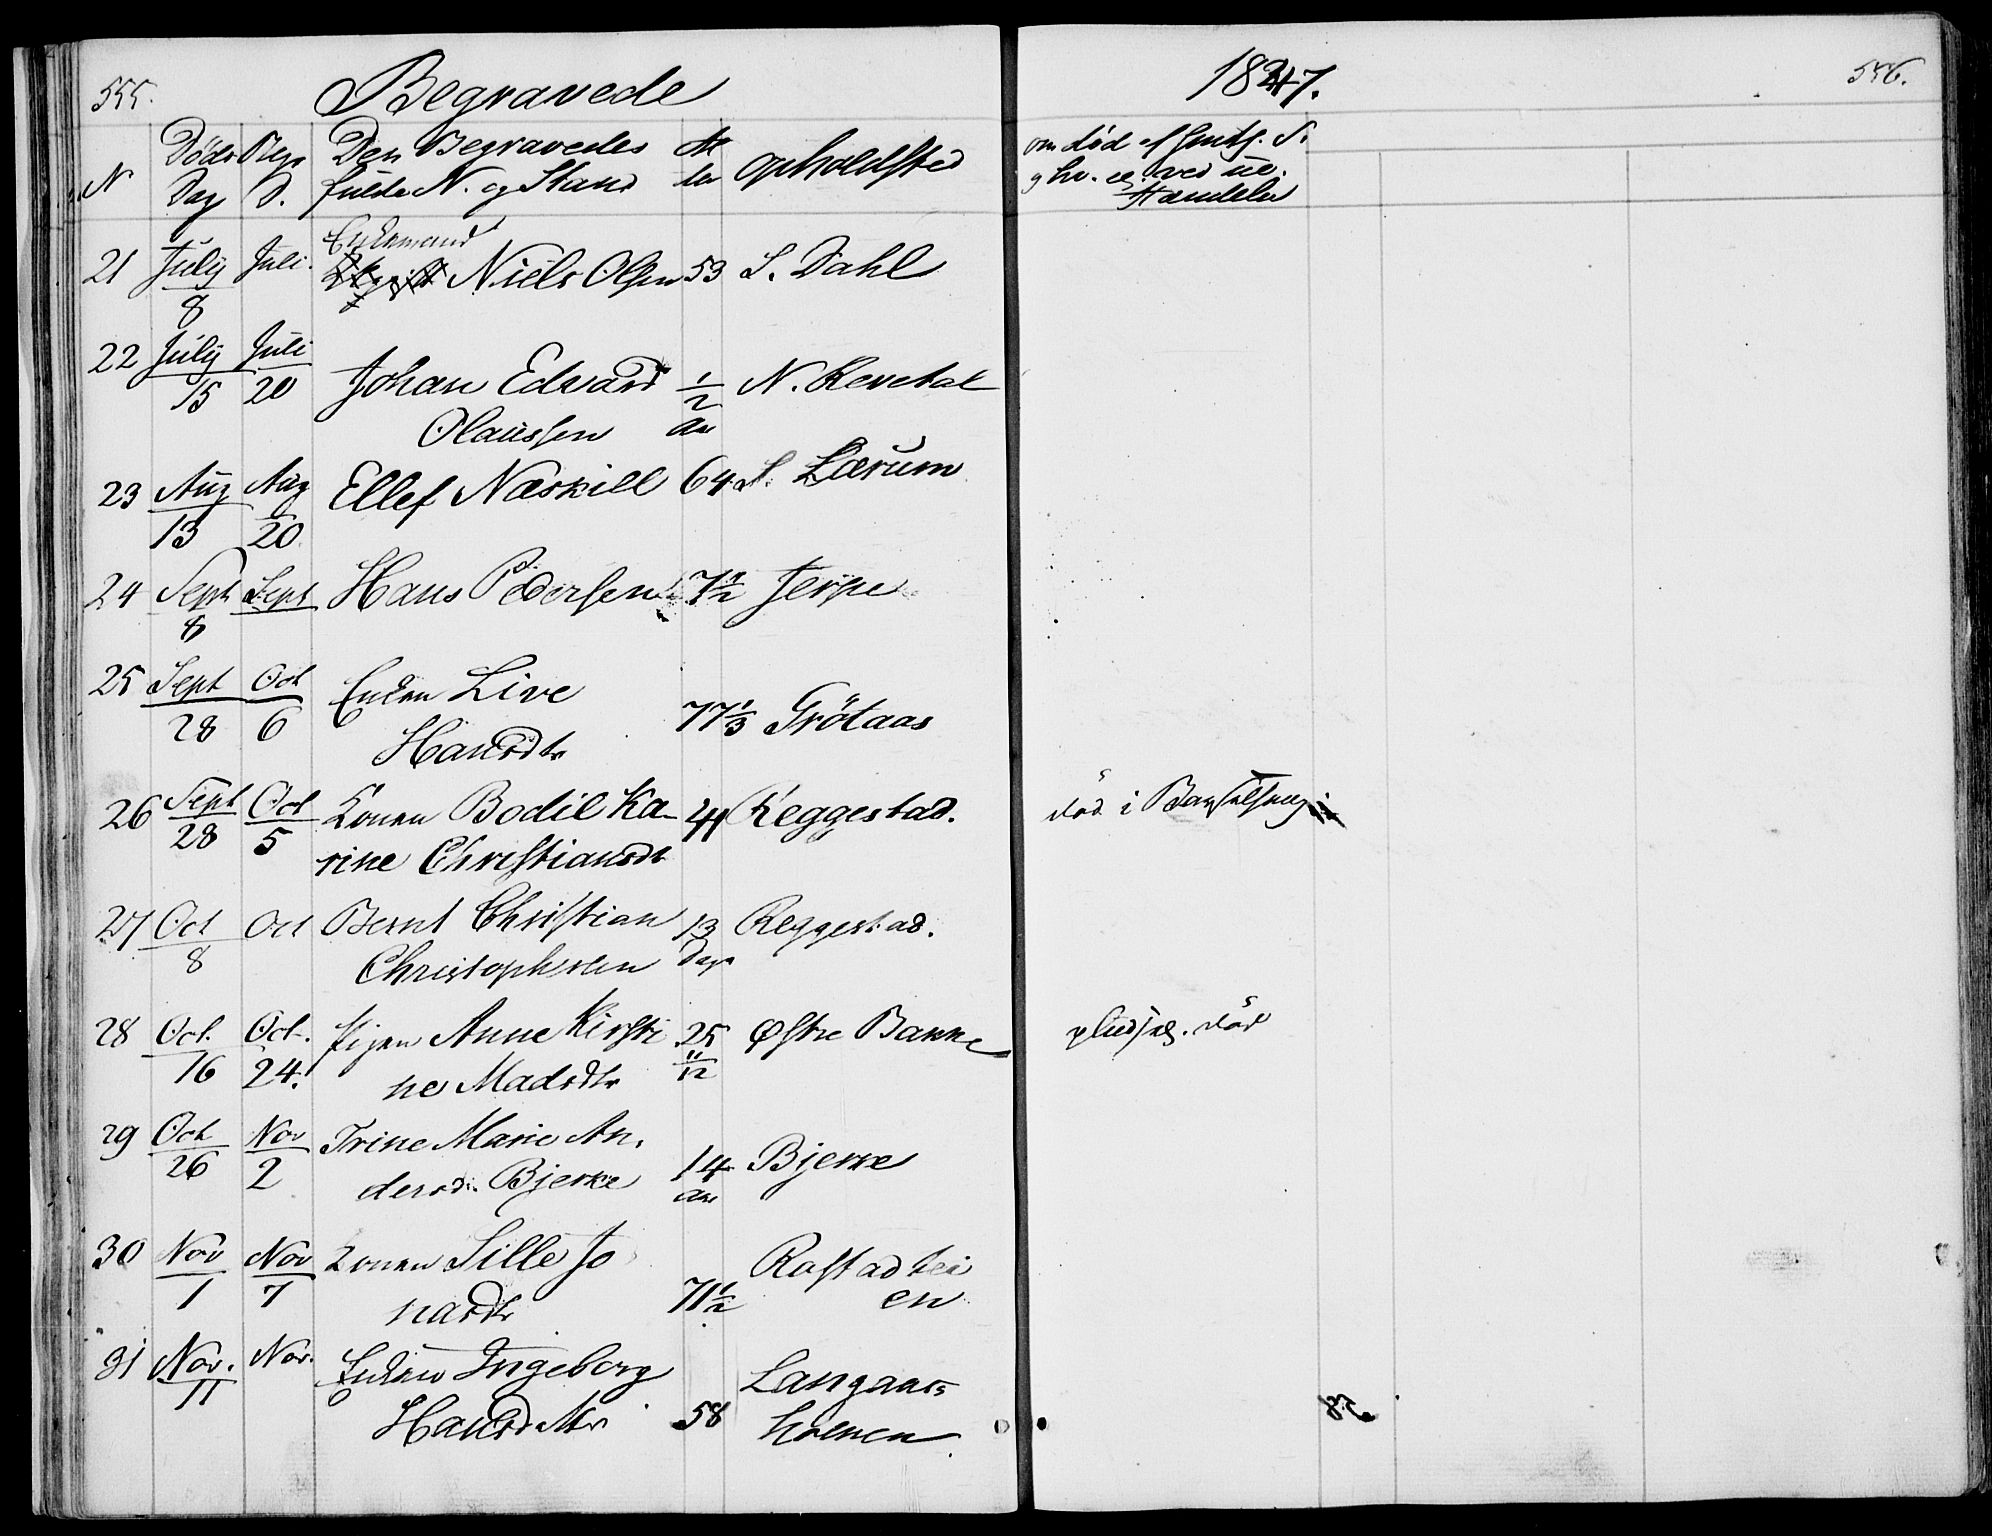 555. Begravede
N Døds Dag Begr D. Den Begravedes fulde N. og Stand Al der Opholdsted
21 July 8 Juli. Enkemand Niels Olsen 53 S. Dahl
22 July 15 Juli 20 Johan Edvard 1/2 N. Revetal
Olaussen Aar
23 Aug 13 Aug 20 Ellef Næskill 64 S. Lærum
24 Sept 8 Sept Hans Pedersen 7 1/2 Jerpe
25 Sept 28 Oct 6 Enken Live
Hansdtr 77 1/3 Grötaas
26 Sept 28 Oct 5 Konen Bodil Ka- 41 Reggestad.
rine Christiansdt
27 Oct 8 Oct Bernt Christian 13 Reggestad.
Christophersen Dage
28 Oct. 16 Oct. 24. Pigen Anne Kirsti 25 Østre Bakke
ne Madsdtr 11/12
29 Oct 26 Nov 2 Trine Marie An.
dersd. Bjerke 14 Bjerke
Aar
30 Nov 1 Nov 7 Konen Sille Jo Rastadtei
nasdtr 71 1/2 en
31 Nov. 11 Nov. Enken Ingeborg Langaas
Hansdattr 58 holmen
1847. 556.
om død af
ved
Hændelse
død i Barselseng
pludselig død